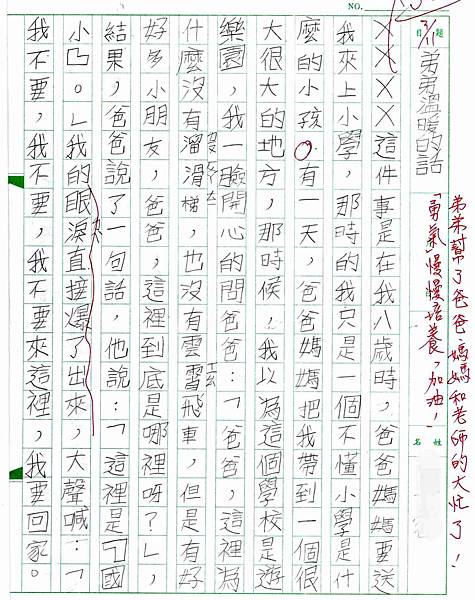 NO.
3/11
題目
弟弟幫了爸爸、媽媽和老師的大忙了!
「勇氣」慢慢培養,加油!
弟弟溫暖的話
姓名
XXXX這件事是在我八歲時,爸爸媽媽要送
我來上小學,那時的我只是一個不懂小學是什
麼的小孩。有一天,爸爸媽媽把我帶到一個很
大很大的地方,那時候,我以為這個學校是遊
樂園,我一臉開心的問爸爸:「爸爸,這裡為
什麼沒有溜滑梯,也沒有雲霄飛車,但是有好
好多小朋友,爸爸,這裡到底是哪裡呀?」,
結果,爸爸說了一句話,他說:「這裡是『國
小』。」我的眼淚直接爆了出來,大聲喊:「
我不要,我不要,我不要來這裡,我要回家。